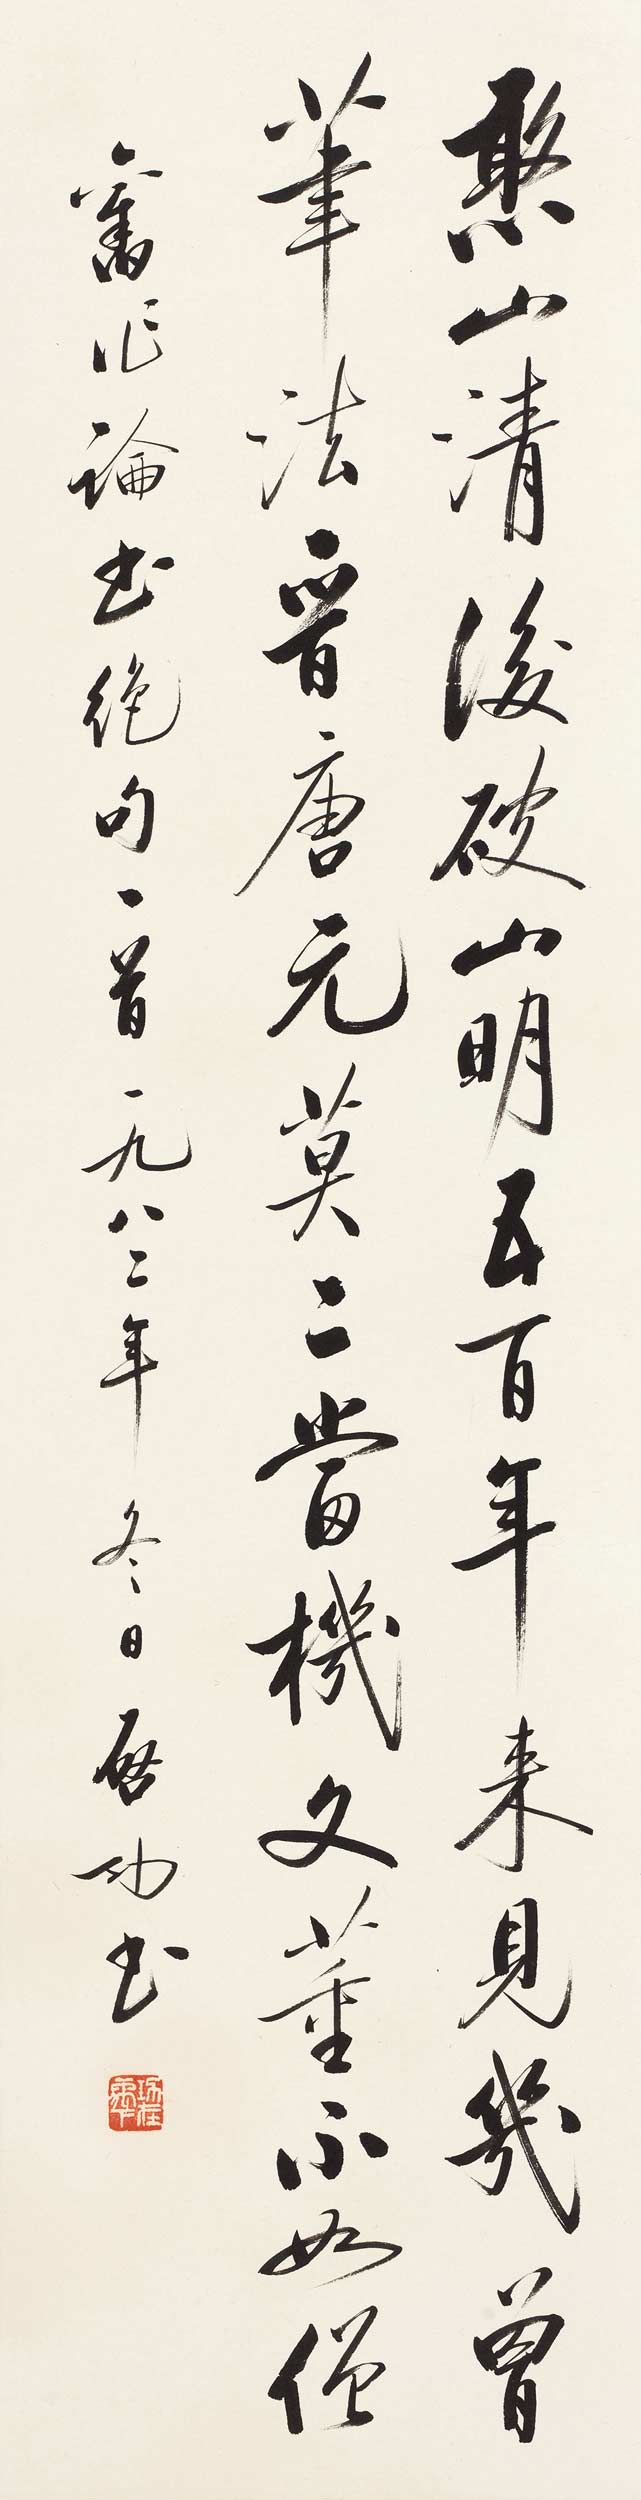 憨山清後破山明五百年来見幾曾
筆法晉唐元莫二當機文董不如僧
舊作論書絶句一首一九八二年冬日啓功書